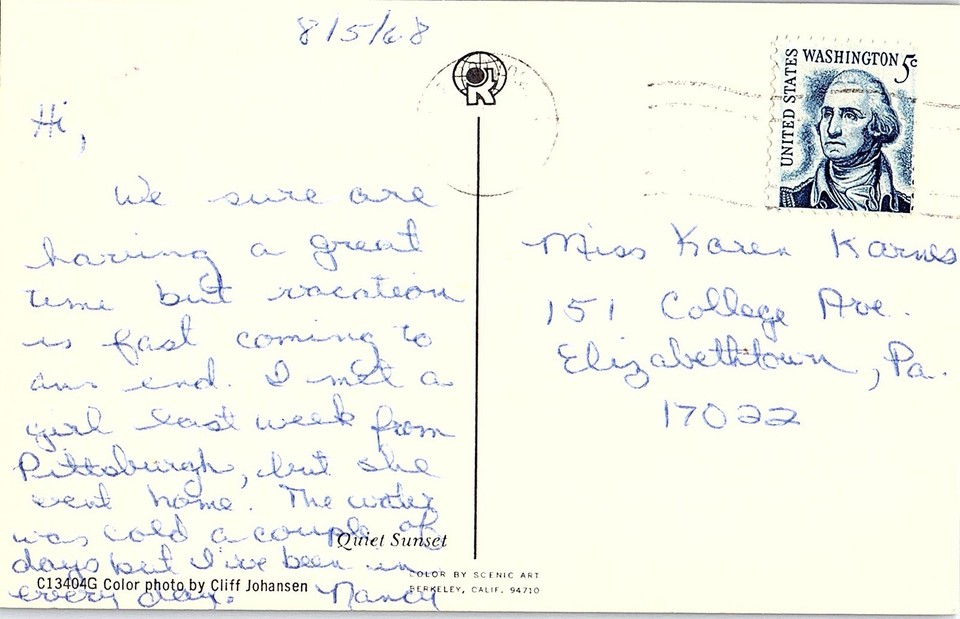 8/5/68
Hi,
We sure are
having a great
time but vacation
is fast coming to
an end. I met a
girl last week from
Pittsburgh, but she
went home. The water
was cold a couple of
days but I've been in
every day. Nancy
Quiet Sunset
C13404G Color photo by Cliff Johansen
COLOR BY SCENIC ART
BERKELEY, CALIF. 94710
UNITED STATES
WASHINGTON 5c
Miss Karen Karnes
151 College Ave.
Elizabethtown, Pa.
17022